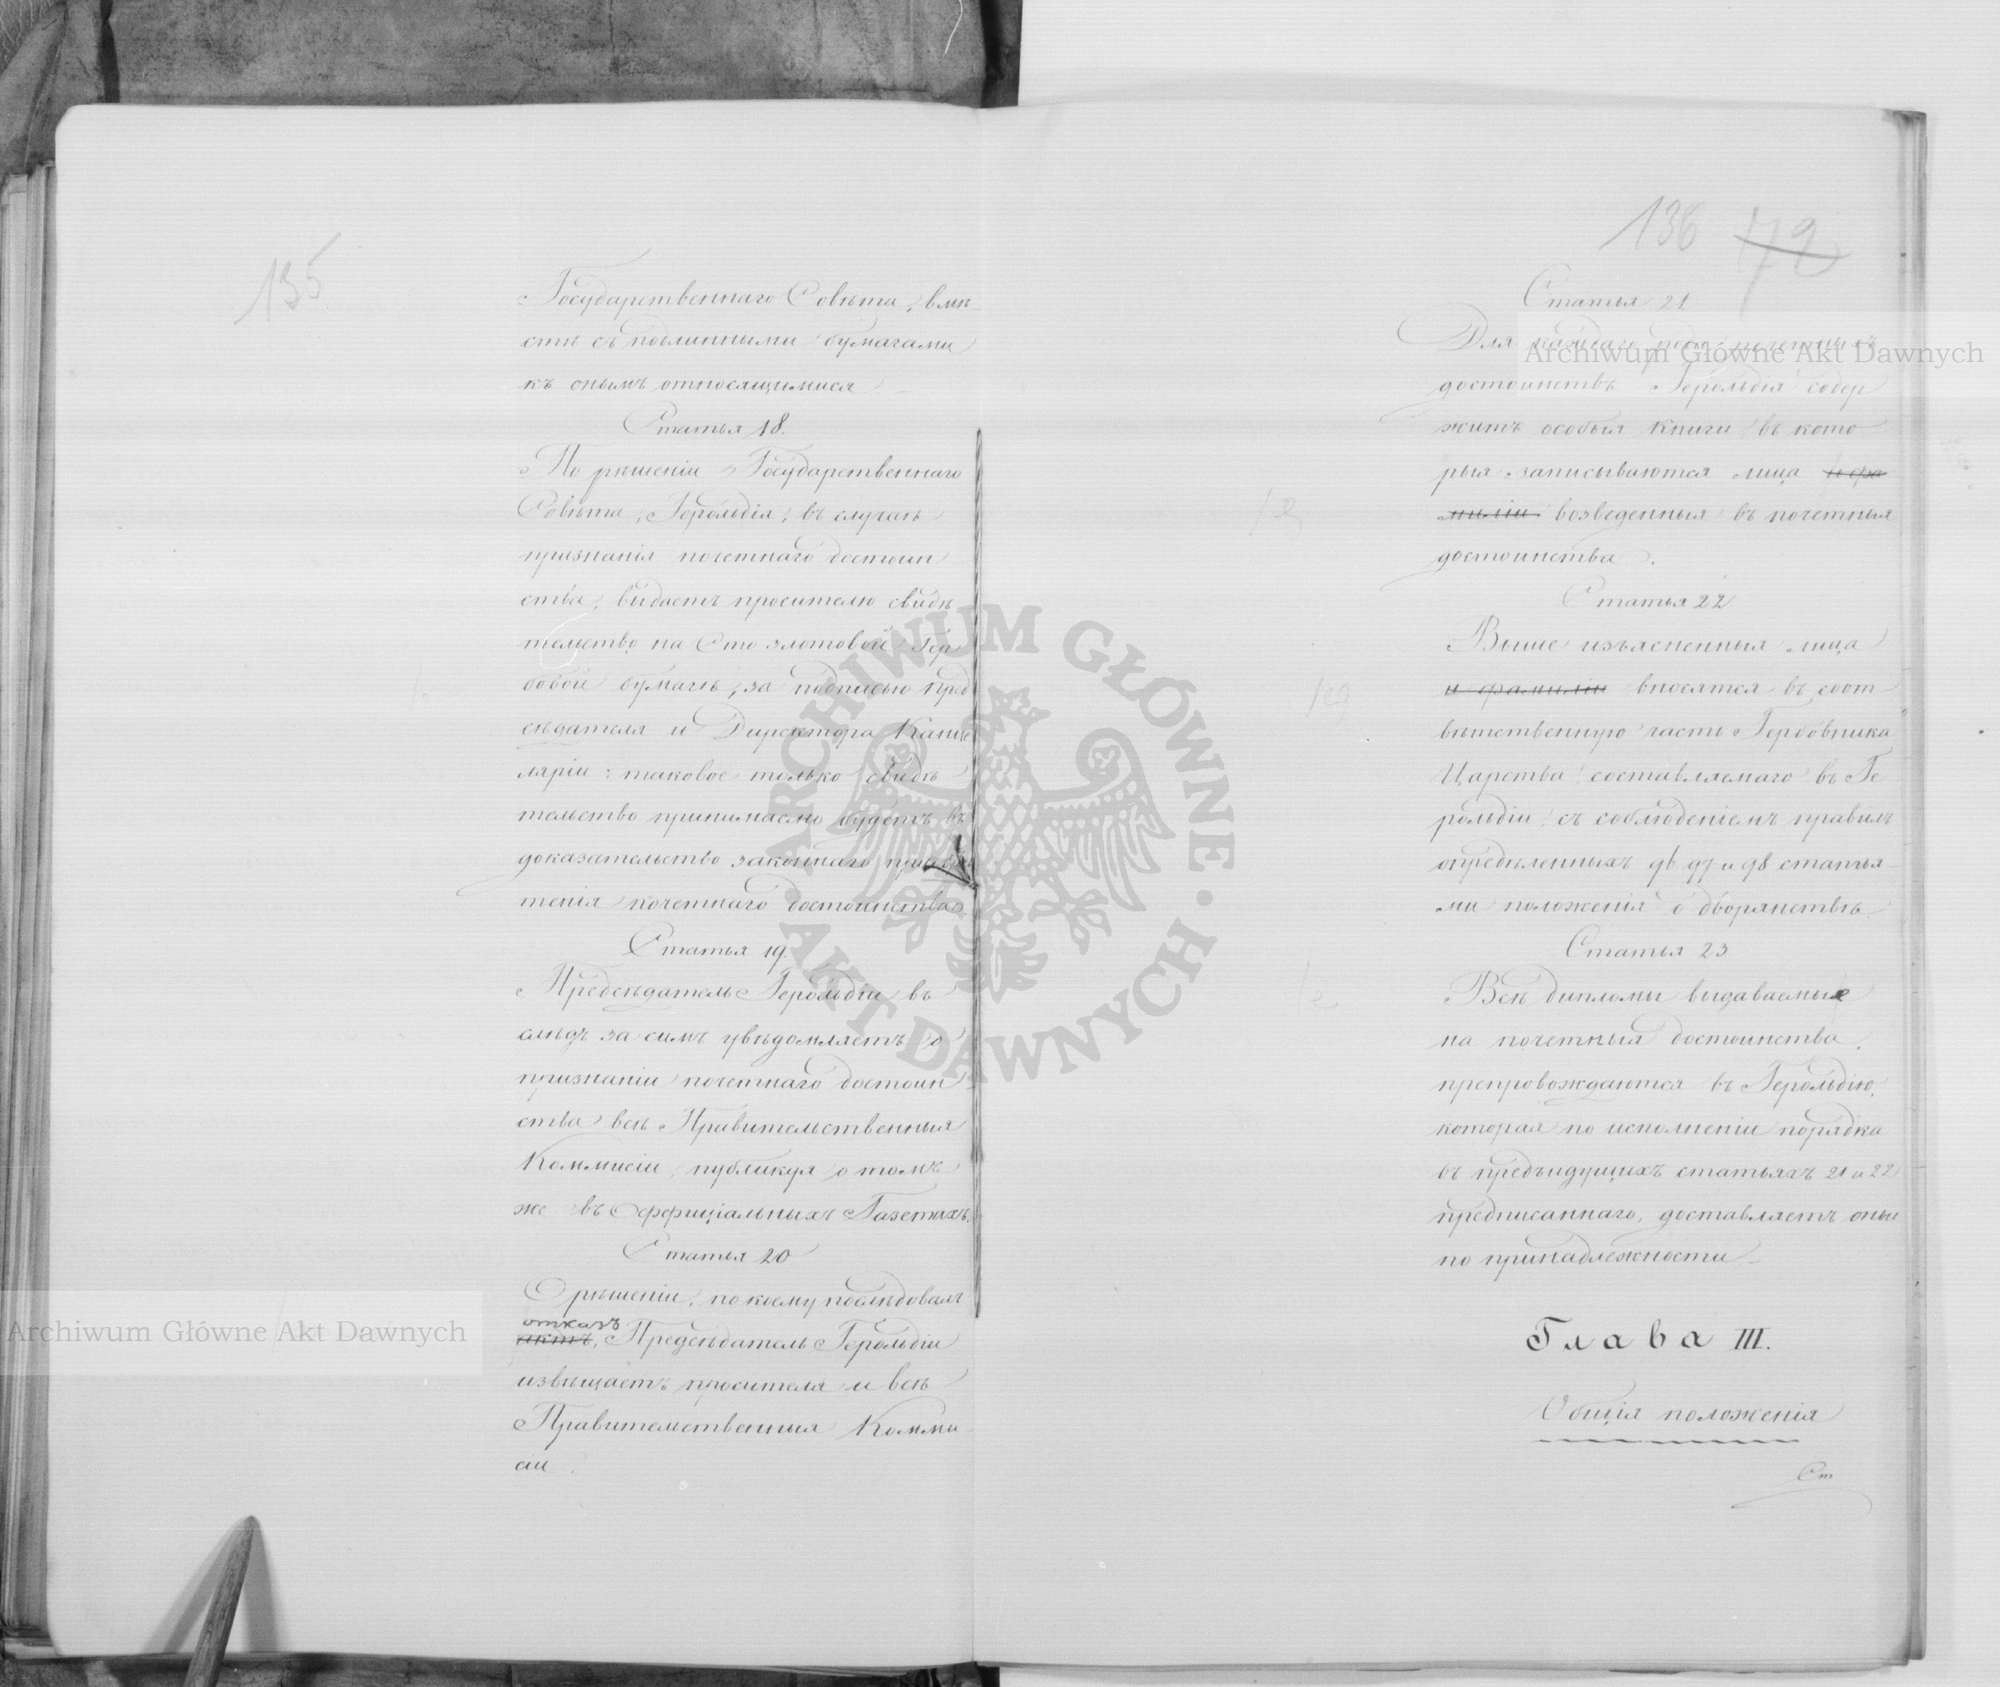 135
Государственнаго Совѣта, вмѣ-
стѣ съ подлинными бумагами
къ онымъ относящимися
Статья 18.
По рѣшеніи Государственнаго
Совѣта, Герольдія, въ случаѣ
признанія почетнаго достоин
ства, выдастъ просителю свидѣ
тельство на Сто злотовой Гер
бовой бумагѣ, за подписью пред
сѣдателя и Директора Канце
ляріи: таковое только свидѣ
тельство принимаемо будетъ въ
доказательство законнаго
тенія почетнаго достоинства.
Статья 19.
Предсѣдатель Герольдіи въ
слѣдъ за симъ увѣдомляетъ о
признаніи почетнаго достоин-
ства всѣ Правительственныя
Коммисіи, публикуя о томъ
же въ Оффиціальныхъ Газетахъ.
Статья 20
О рѣшеніи, по коему послѣдовалъ
отказъ
актъ, Предсѣдатель Герольдіи
извѣщаетъ просителя и всѣ
Правительственныя Комми-
сіи.
136 72
Статья 21.
Для каждаго рода почетныхъ
достоинствъ Герольдія содер
житъ особыя книги въ кото
рыя записываются лица и фа
миліи возведенныя въ почетныя
достоинства.
Статья 22
Выше изъясненныя лица
и фамиліи вносятся въ соот
вѣтственную часть Гербовника
Царства составляемаго въ Ге
рольдіи, съ соблюденіемъ правилъ
опредѣленныхъ 96 97 и 98 статья-
ми положенія о дворянствѣ.
Статья 23
Всѣ дипломы выдаваемые
на почетныя достоинства,
препровождаются въ Герольдію,
которая по исполненіи порядка
въ предъидущихъ статьяхъ 21 и 22
предписаннаго, доставляетъ оныя
по принадлежности
Глава III.
Общія положенія
Ст
Archiwum Główne Akt Dawnych
Archiwum Główne Akt Dawnych
ARCHIWUM GŁÓWNE · AKT DAWNYCH ·